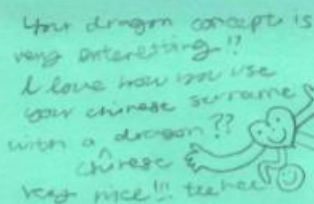 Your dragon concept is
very interesting!!
I love how you use
your chinese surname
with a dragon??
chinese
very nice!!! teehee